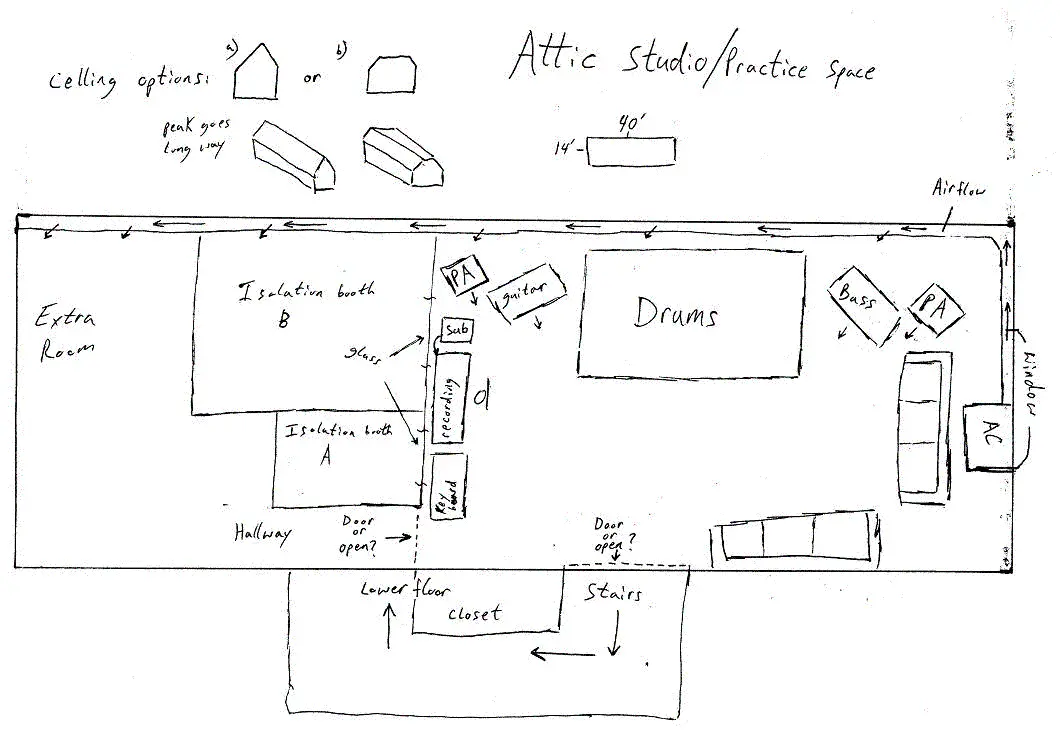 Attic Studio/Practice Space
Celling options:
a)
or
b)
peak goes
long way
40'
14'
Airflow
Extra
Room
Isolation booth
B
glass
Isolation booth
A
PA
guitar
Sub
recording
Key
board
Drums
Bass
PA
Window
AC
Hallway
Door
or
open?
Door
or
open?
Lower floor
closet
Stairs